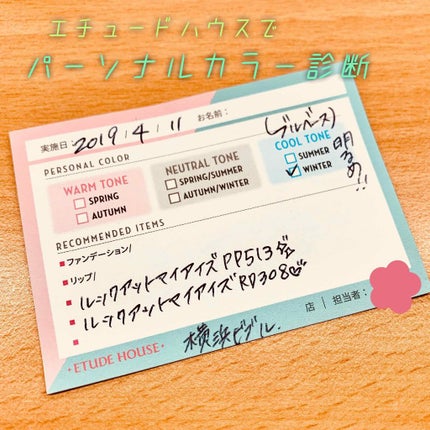 エチュードハウスで
パーソナルカラー診断
実施日: 2019/4/11 お名前:
PERSONAL COLOR
(ブルベース)
WARM TONE
SPRING
AUTUMN
NEUTRAL TONE
SPRING/SUMMER
AUTUMN/WINTER
COOL TONE
SUMMER
WINTER
明るめ!!
RECOMMENDED ITEMS
ファンデーション/
リップ/
ルックアットマイアイズPP513☆
ルックアットマイアイズRD308
店 | 担当者:
・ETUDE HOUSE・
横浜ビブレ.